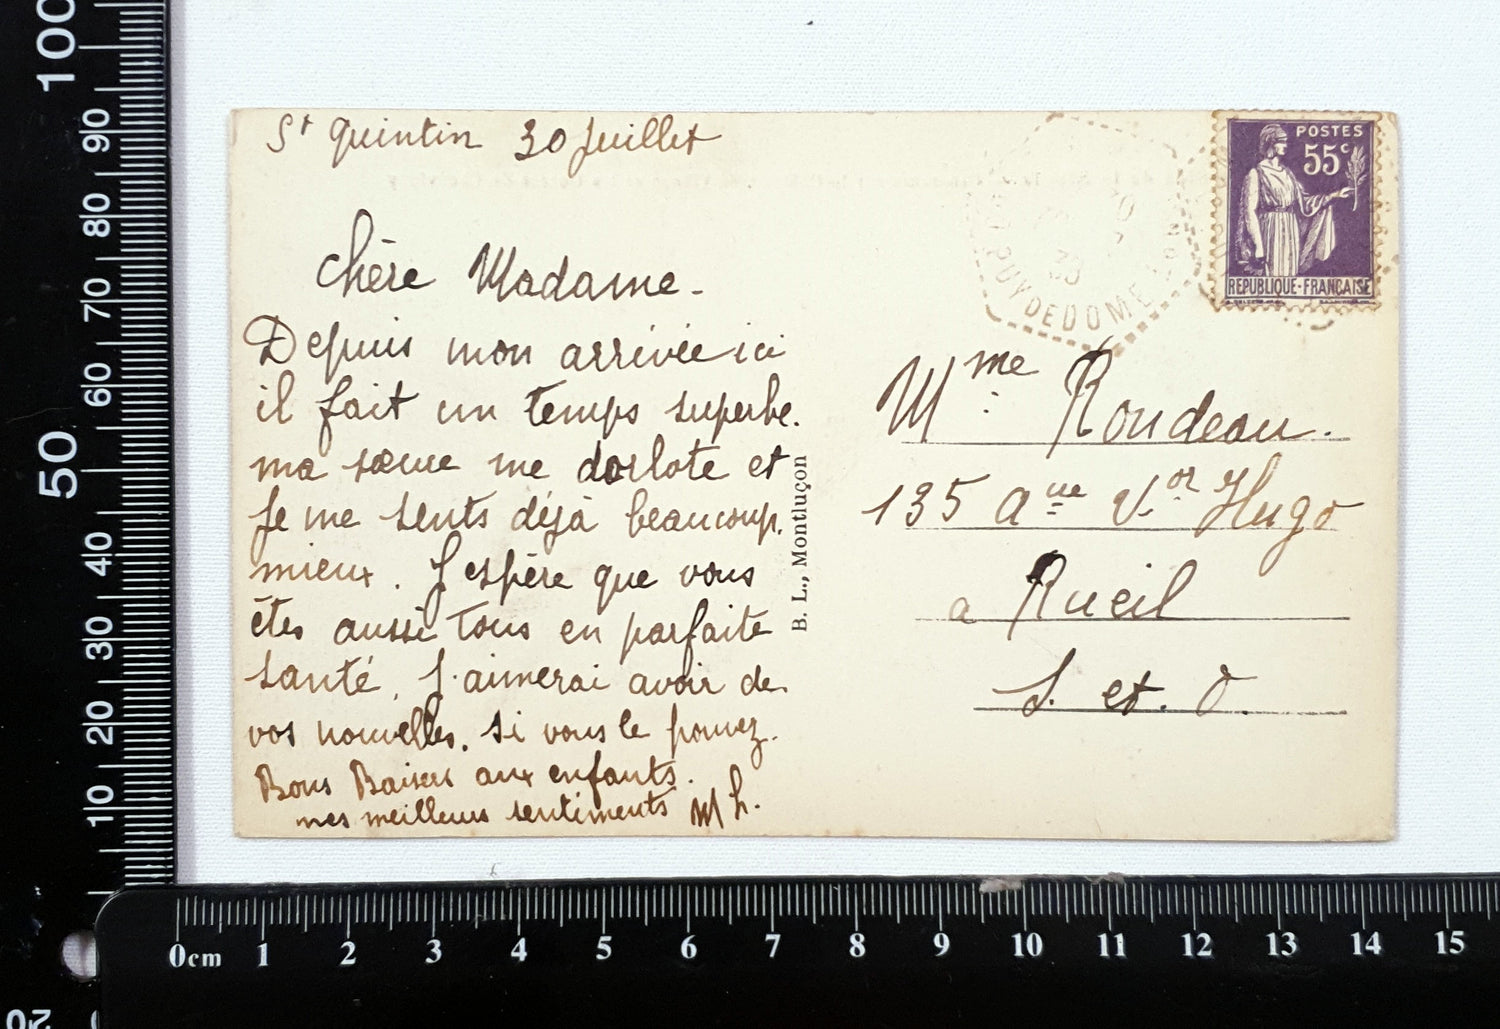 St Quintin 30 Juillet
Chère Madame.
Depuis mon arrivée ici
il fait un temps superbe.
ma sœur me dorlote et
Je me sents déjà beaucoup.
mieux. J'espère que vous
êtes aussi tous en parfaite
santé. J'aimerai avoir de
vos nouvelles. si vous le pouvez.
Bons Baisers aux enfants.
mes meilleurs sentiments M h.
B. L., Montluçon
POSTES
55c
REPUBLIQUE-FRANÇAISE
PUY DE DOME
Mme Rondeau.
135 Aue Vor Hugo
a Rueil
S. et. O.
100
90
80
70
60
50
40
30
20
10
0cm 1 2 3 4 5 6 7 8 9 10 11 12 13 14 15
20